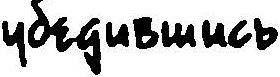 убедившись